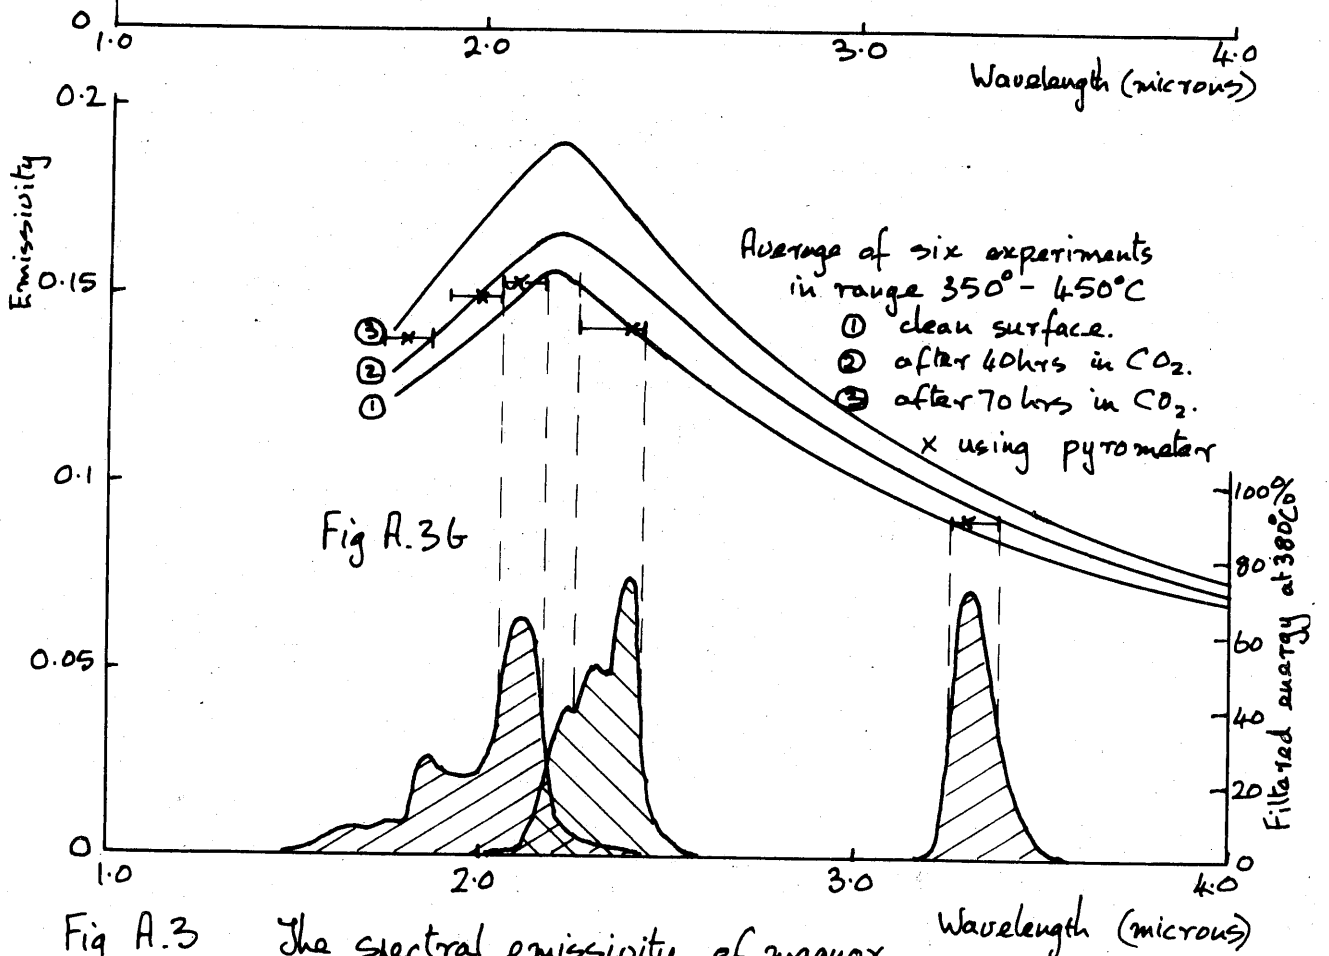 0
1.0 2.0 3.0 4.0
Wavelength (microns)
0.2
0.15
0.1
0.05
0
Emissivity
Average of six experiments
in range 350° - 450°C
① clean surface.
② after 40hrs in CO₂.
③ after 70 hrs in CO₂.
x using pyrometer
③
②
①
Fig A.3b
100%
80
60
40
20
0
Filtered energy at 380°C
1.0 2.0 3.0 4.0
Wavelength (microns)
Fig A.3 The spectral emissivity of magnox